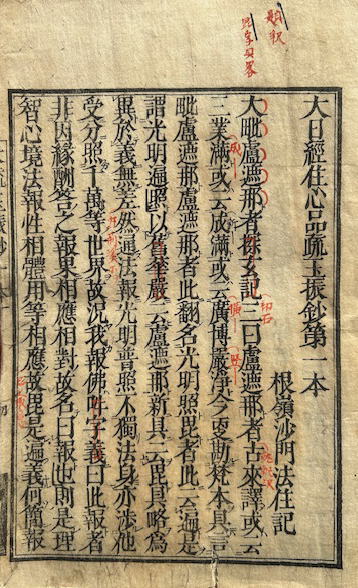 大日經住心品疏玉振鈔第一本
根嶺沙門法住記
大毗盧遮那者探玄記三曰盧遮那者古來譯或云
三業滿或云成滿或云廣博嚴淨今更勘梵本具言
毗盧遮那者此翻名光明照毗者此云遍是
謂光明遍照以舊華嚴云盧遮那新具云毗具略為
異於義無差然通法報光明普照不獨法身亦渉他
受分照千萬等世界故况我報佛四字義曰此報者
非因緣酬答之報果相應相對故名曰報也則是理
智心境法報性相體用等相應故毗是遍義何簡報